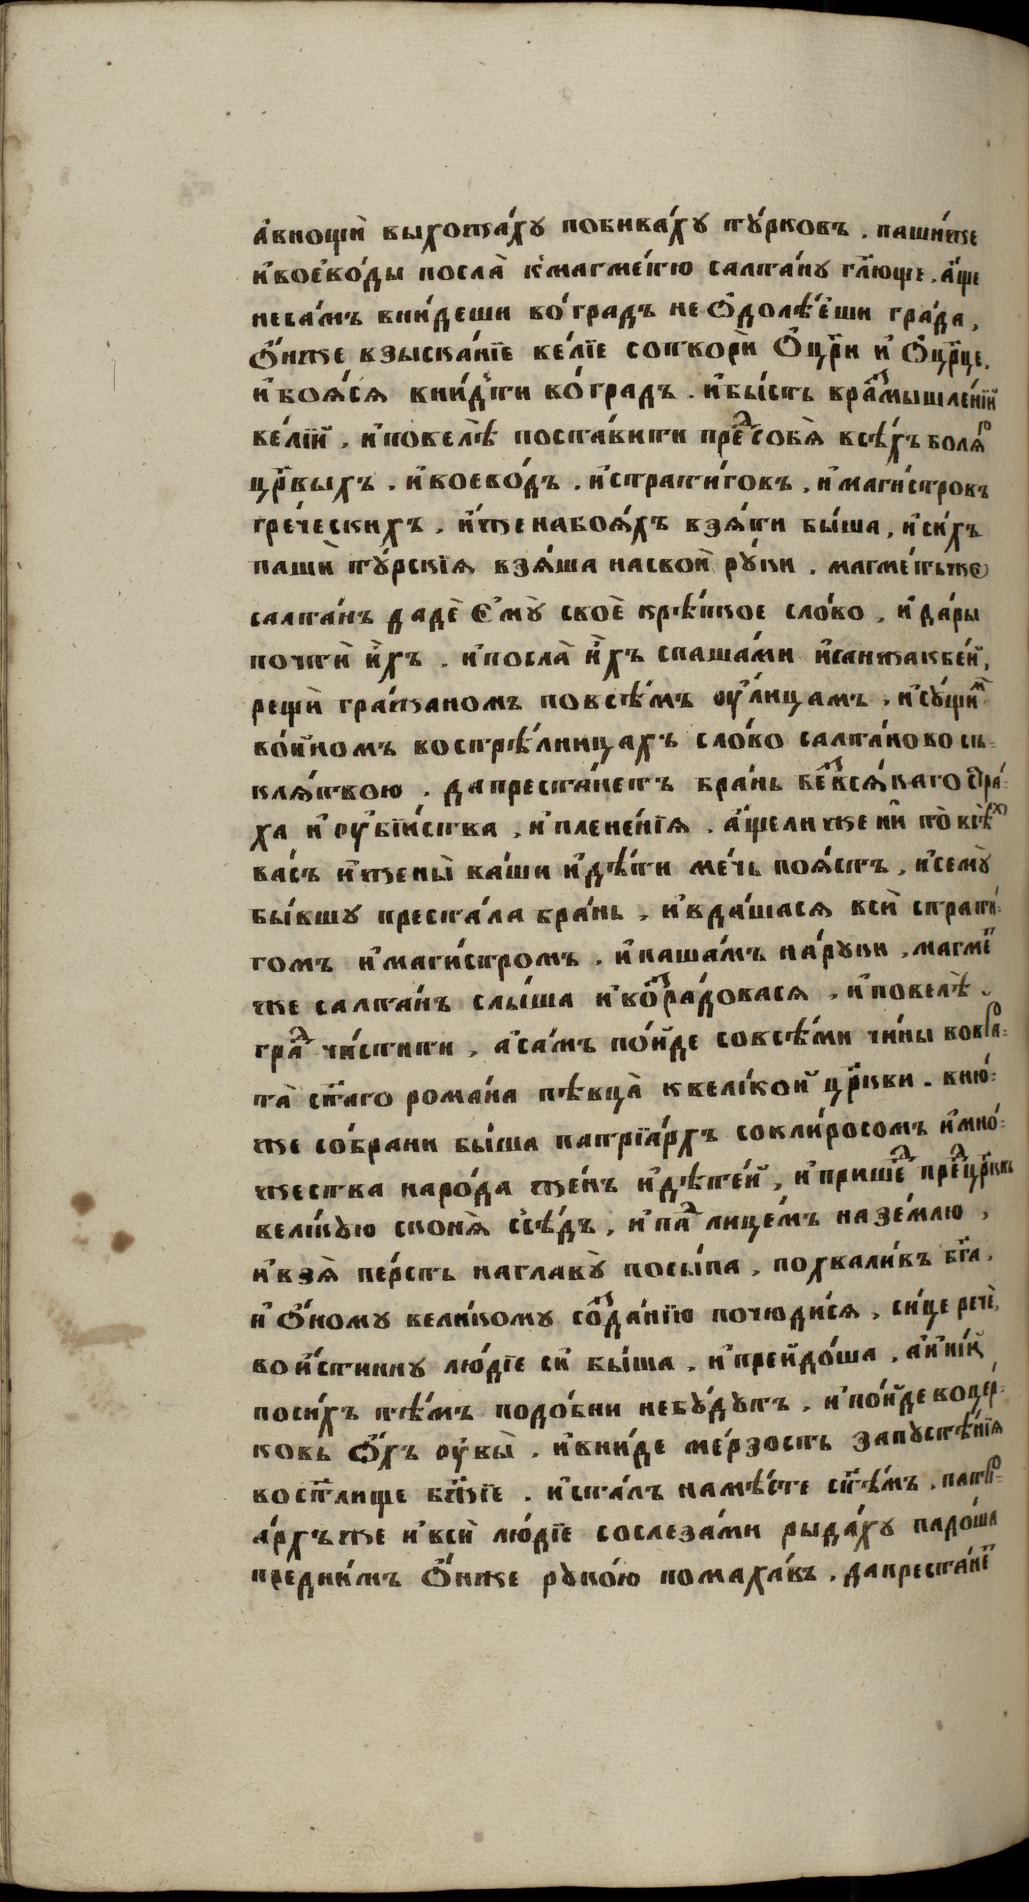 а҆внощѝ выхожа́хꙋ побива́хꙋ тꙋ́рковъ . пашѝже
и҆воево́ды посла̀ к҆магме́тꙋ салта́нꙋ гл҃юще . а҆́ще
неса́мъ вни́деши во́градъ не ѡ҆долѣ́еши гра́да ,
ѻ҆́нже взыска́нїе ве́лїе сотворѝ ѻ҆цр҃и и҆ ѻ҆цр҃це .
и҆боѧ́сѧ вни́д̾ти во́градъ . и҆бы́сть вразмышле́нїй
ве́лїй , и҆повелѣ̀ поста́вити предсобѧ̀ всѣ́хъ болѧр
цр҃выхъ . и҆воево́дъ . и҆страти́говъ , и҆маги́стровъ
гре́ческихъ . и҆́женабоѧ́хъ взѧ́ти бы́ша , и҆си́хъ
пашѝ тꙋ́рскїѧ взѧ́ша насвоѝ рꙋ́ки . магме́тъже
салта́нъ дадѐ є҆мꙋ̀ своѐ крѣ́пкое сло́во , и҆да́ры
почтѝ и҆̀хъ . и҆посла̀ и҆̀хъ спаша́ми и҆санжакбе́й ,
рещѝ гра́жаномъ повсѣ́мъ ᲂу҆́лицамъ , и҆сꙋ́щим
во́йномъ вострѣ́лницахъ сло́во салта́ново сь=
клѧ́твою . дапреста́нетъ бра́нь безвсѧ́каго стра́=
ха и҆ ᲂу҆бі́йства , и҆плене́нїѧ . а҆́щелиже нѝ то̀ всѣх
ва́съ и҆жены̀ ва́ши и҆дѣ́ти ме́чь поѧ́стъ , и҆семꙋ̀
бы́вшꙋ преста́ла бра́нь , и҆вда́шасѧ всѝ страти=
гомъ и҆маги́стромъ . и҆паша́мъ на́рꙋки , магмет
же салта́нъ слы́ша и҆возра́довасѧ , и҆повелѣ̀ .
град чи́стити , а҆са́мъ по́йде совсѣ́ми чи́ны вовра=
та̀ ст҃аго рома́на пѣвца̀ квели́кой цр҃кви . вню́=
же со́брани бы́ша патрїа́рхъ сокли́росомъ и҆мно́=
жества наро́да же́нъ и҆дѣте́й , и҆пришед предцр҃квь
вели́кꙋю сконѧ̀ с̾сѣ́дъ , и҆пад лице́мъ назе́млю ,
и҆взѧ̀ пе́рсть наглавꙋ̀ посы́па , похвали́въ бг҃а .
и҆ ѻ҆́номꙋ вели́комꙋ созда́нїю почюди́сѧ , си́це речѐ ,
вои́стиннꙋ лю́дїе сѝ бы́ша , и҆прейдо́ша , а҆и҆ни́й
поси́хъ тѣ́мъ подо́бни небꙋ́дꙋтъ . и҆по́йде воцер=
ковь ѻ҆́хъ ᲂу҆вы̀ . и҆вни́де ме́рзость запꙋстѣ́нїѧ
вост҃лище бж҃їе . и҆ста́лъ намѣ́сте ст҃ѣ́мъ . патрї=
а́рхъже и҆всѝ лю́дїе сослеза́ми рыда́хꙋ падо́ша
предни́мъ ѻ҆́нже рꙋко́ю помаха́въ . дапреста́нет